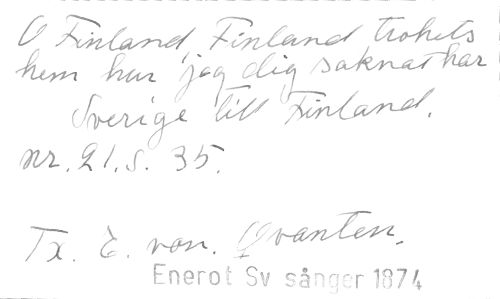 O Finland, Finland trohets
hem hur jag dig saknat har
Sverige till Finland.
nr. 21. s. 35.
Tx. E. von. Qvanten.
Enerot Sv sånger 1874